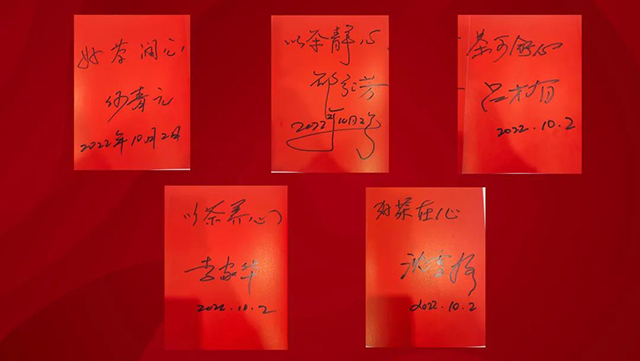 好茶润心
何寿元
2022年10月2日
以茶静心
2022年10月2号
茶可舒心
2022.10.2
以茶养心
李家华
2022.10.2
好茶在心
2022.10.2